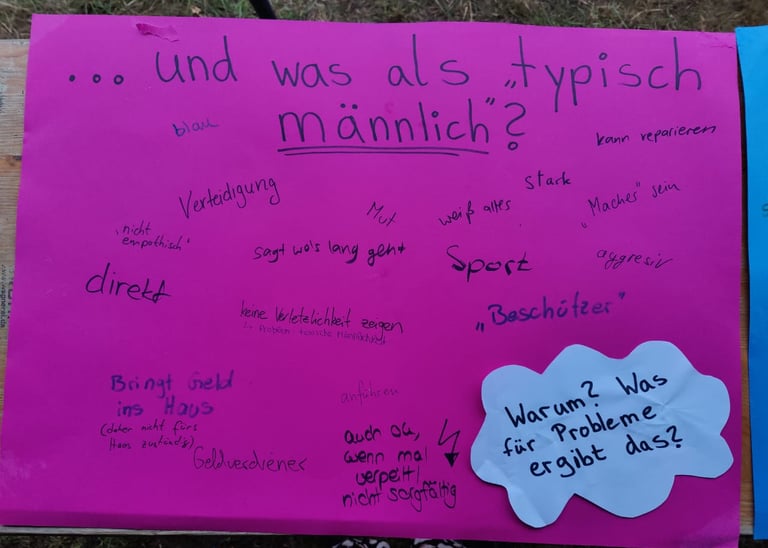 ... und was als „typisch
männlich"?
blau
kann reparieren
Verteidigung
Mut
stark
weiß alles
„Macher" sein
„nicht
empathisch"
sagt wo's lang geht
Sport
aggresiv
direkt
keine Verletzlichkeit zeigen
↳ Problem: toxische Männlichkeit
„Beschützer"
Bringt Geld
ins Haus
(daher nicht fürs
Haus zuständig)
Geldverdiener
anführen
auch ok,
wenn mal
verpeilt/
nicht sorgfältig
Warum? Was
für Probleme
ergibt das?